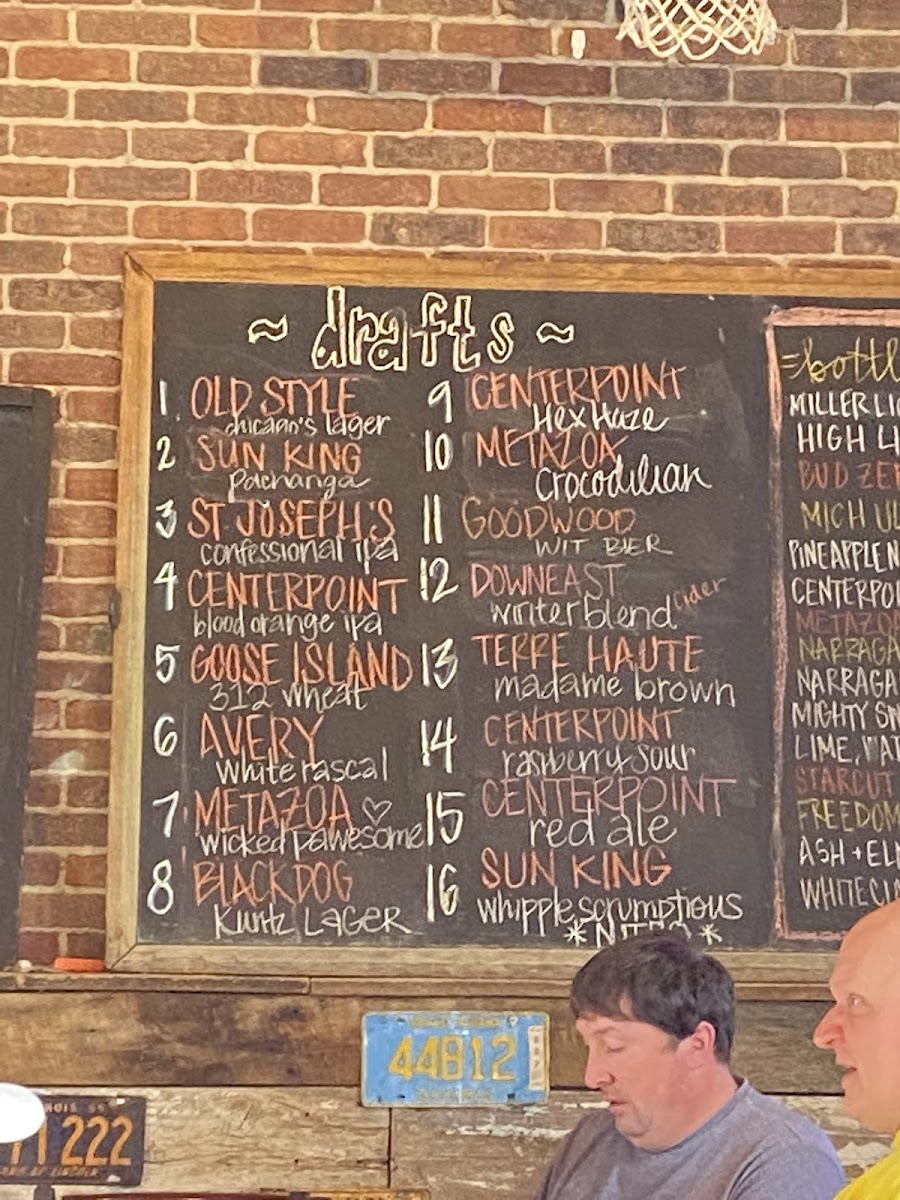 ~ drafts ~
1 OLD STYLE
chicago's lager
2 SUN KING
Pachanga
3 ST JOSEPH'S
confessional ipa
4 CENTERPOINT
blood orange ipa
5 GOOSE ISLAND
312 wheat
6 AVERY
White rascal
7 METAZOA ♡
wicked pawesome
8 BLACKDOG
Kuntz LAGER
9 CENTERPOINT
Hex Haze
10 METAZOA
Crocodilian
11 GOODWOOD
WIT BIER
12 DOWNEAST
winter blend cider
13 TERRE HAUTE
madame brown
14 CENTERPOINT
raspberry sour
15 CENTERPOINT
red ale
16 SUN KING
whipple scrumptious
* NITRO *
=bottl
MILLER LI
HIGH LI
BUD ZE
MICH UL
PINEAPPLE N
CENTERPOI
METAZO
NARRAGA
NARRAGA
MIGHTY SW
LIME, WAT
STARCUT
FREEDOM
ASH + EL
WHITE CL
44B12
222